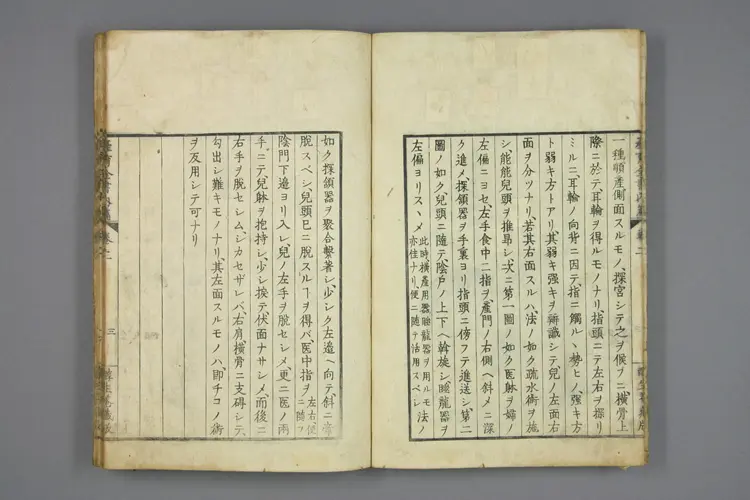 一種順産側面スルモノ、探宮シテ之ヲ候フニ、横骨上
際ニ於テ耳輪ヲ得ルモノナリ、指頭ニテ左右ヲ探リ
ミルニ、耳輪ノ向背ニ因テ、指ニ觸ルヽ勢ヒノ、强キ方
ト弱キ方トアリ、其弱キ强キヲ辨識シテ、兒ノ左面右
面ヲ分ツナリ、若其右面スルハ、法ノ如ク疏水術ヲ施
シ、能能兒頭ヲ推昂シ、次ニ第一圖ノ如ク、医躰ヲ婦ノ
左偏ニヨセ、左手食中二指ヲ、產門ノ右側ヘ斜メニ深
ク進メ、探頷器ヲ手裏ヨリ指頭ニ傍フテ進送シ、第二
圖ノ如ク、兒頭ニ隨テ、陰戸ノ上下ヘ斡旋シ、睡龍器ヲ
左偏ヨリスヽメ 此時横產用蟠龍器ヲ用ルモ亦佳ナリ、便ニ隨テ活用スベシ 法ノ
如ク探頷器ヲ聚合繫著シ、少シク左邉ヘ向テ、斜ニ牽
脫スベシ、兒頭巳ニ脫スルヿヲ得バ、医中指ヲ 左右、便ニ隨フ
陰門下邉ヨリ入レ、兒ノ左手ヲ脫セシメ、更ニ医ノ兩
手ニテ、兒躰ヲ抱持シ、少シ挨テ伏面ナサシメ、而後ニ
右手ヲ脫セシム、シカセザレバ、右肩横骨ニ支碍シテ、
勾出シ難キモノナリ、其左面スルモノハ、即チコノ術
ヲ反用シテ可ナリ
三